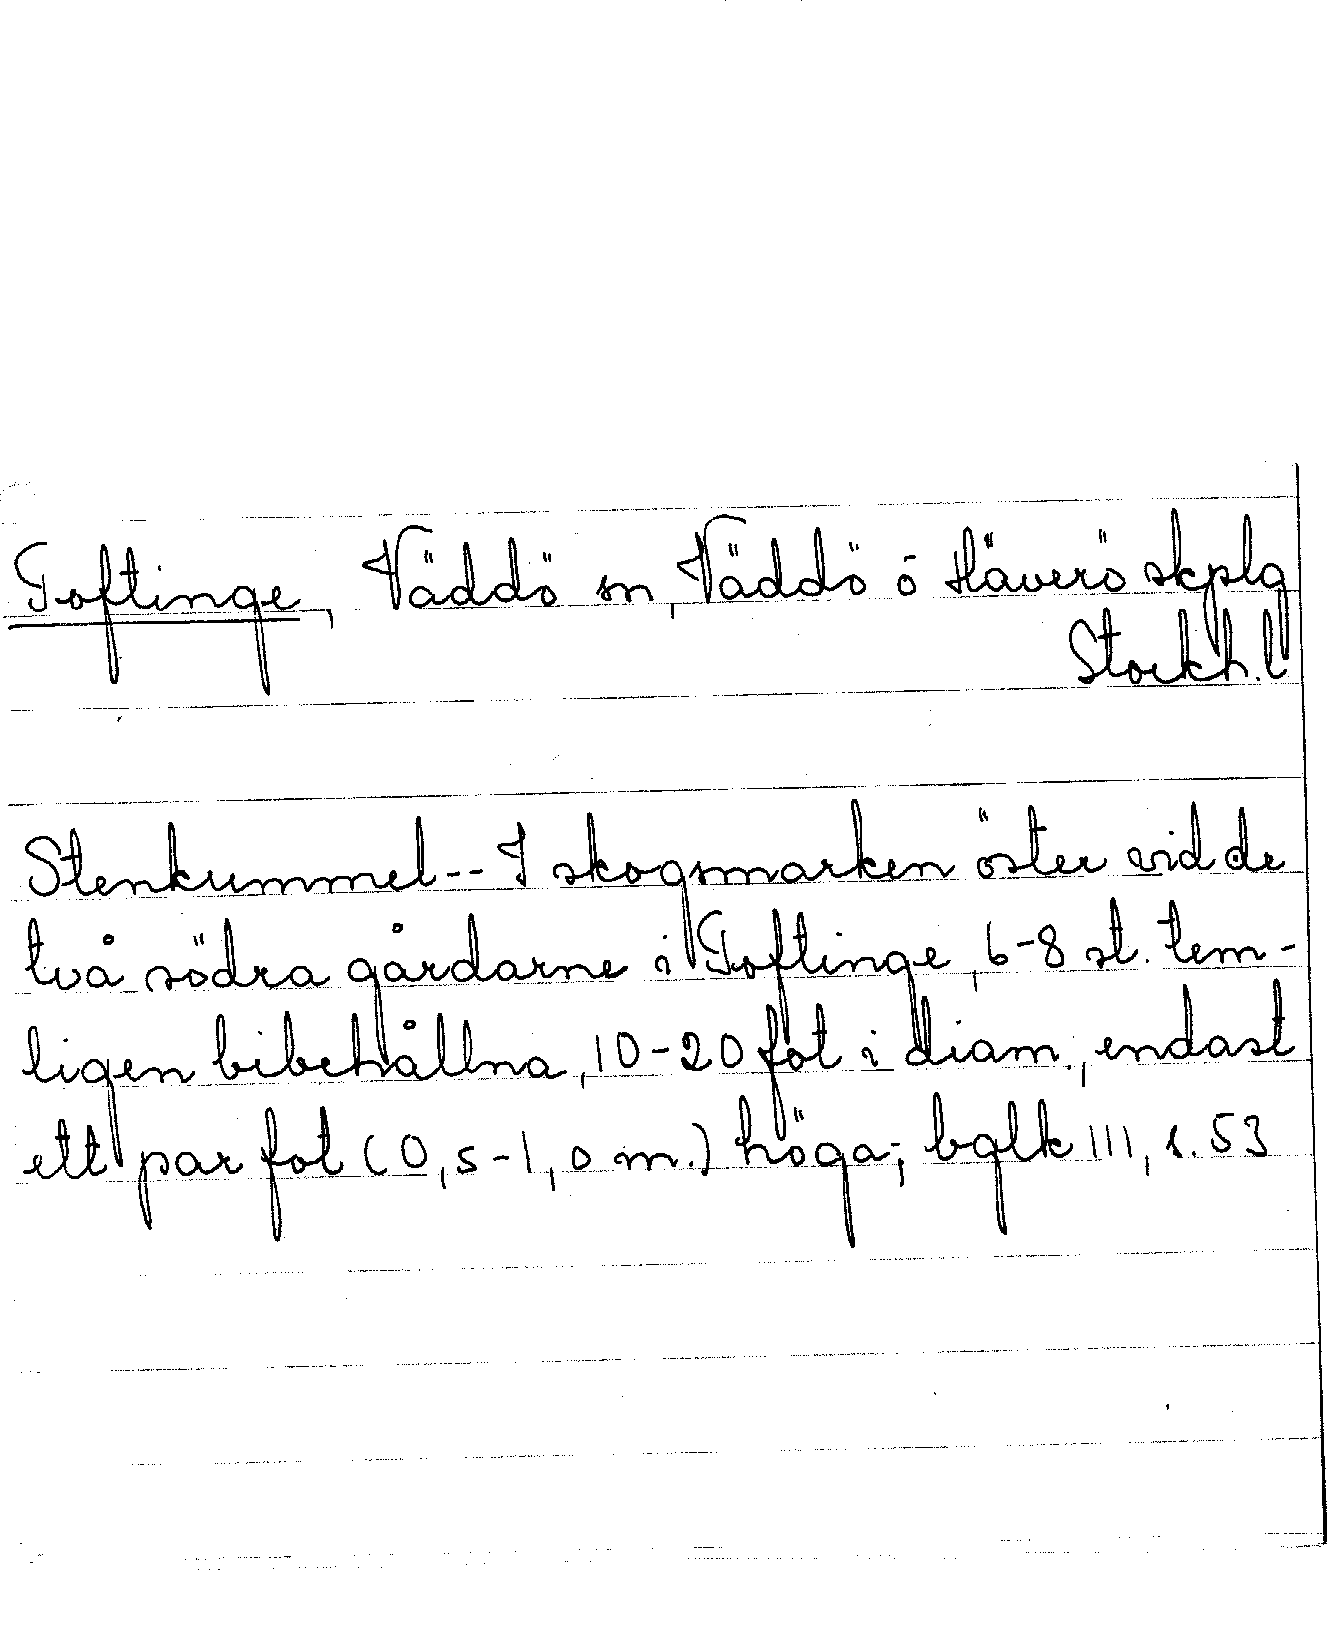 Toftinge, Väddö sn, Väddö ō Häverö skplg
Stockh. l
Stenkummel-- I skogsmarken öster vid de
två södra gårdarne i Toftinge, 6-8 st. tem-
ligen bibehållna, 10-20 fot i diam., endast
ett par fot (0,5-1,0 m.) höga; bqlk III, s. 53